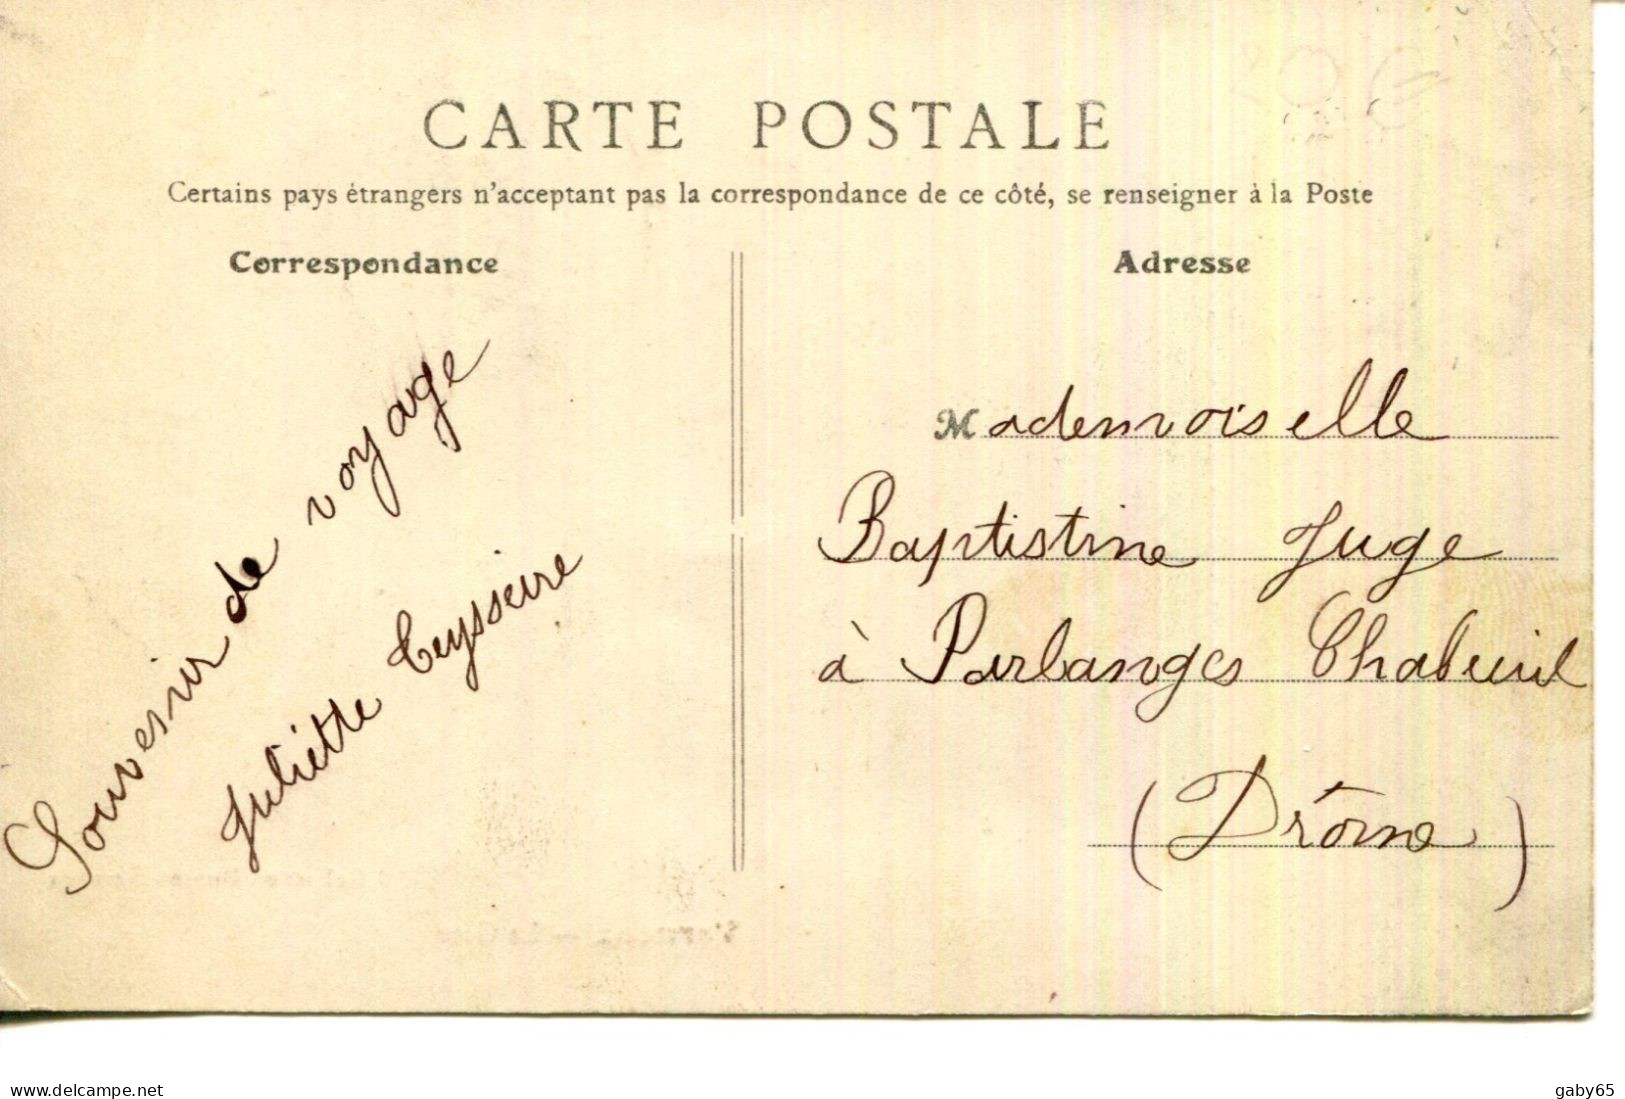 CARTE POSTALE
Certains pays étrangers n'acceptant pas la correspondance de ce côté, se renseigner à la Poste
Correspondance
Souvenir de voyage
Juliette Teysseire
Adresse
Mademoiselle
Baptistine Juge
à Parlanges Chabeuil
(Drôme)
www.delcampe.net
gaby65